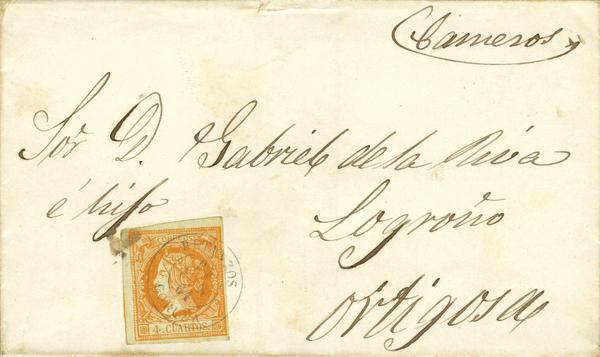 Cameros
Sor D. Gabriel de la Riva
é hijo
Logroño
Ortigosa
CORREOS
4 CUARTOS